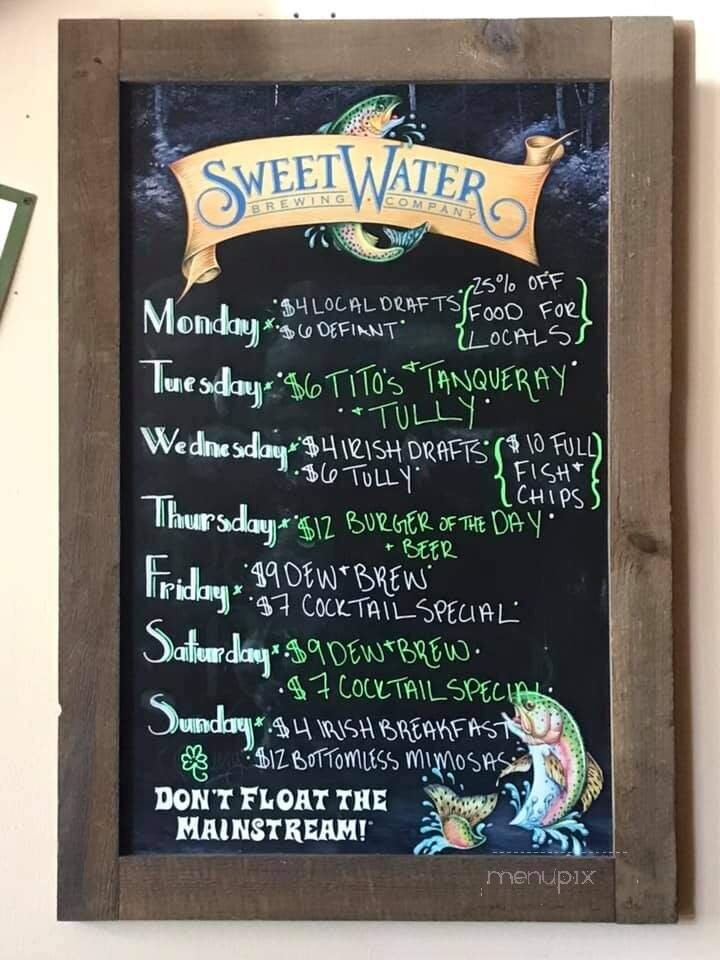 SWEETWATER
BREWING COMPANY
Monday $4 LOCAL DRAFTS
$6 DEFIANT
25% OFF
FOOD FOR
LOCALS
Tuesday $6 TITO'S + TANQUERAY
+ TULLY
Wednesday $4 IRISH DRAFTS
$6 TULLY
$10 FULL
FISH +
CHIPS
Thursday $12 BURGER OF THE DAY
+ BEER
Friday $9 DEW + BREW
$7 COCKTAIL SPECIAL
Saturday $9 DEW + BREW
$7 COCKTAIL SPECIAL
Sunday $4 IRISH BREAKFAST
$12 BOTTOMLESS MIMOSAS
DON'T FLOAT THE
MAINSTREAM!
menupix